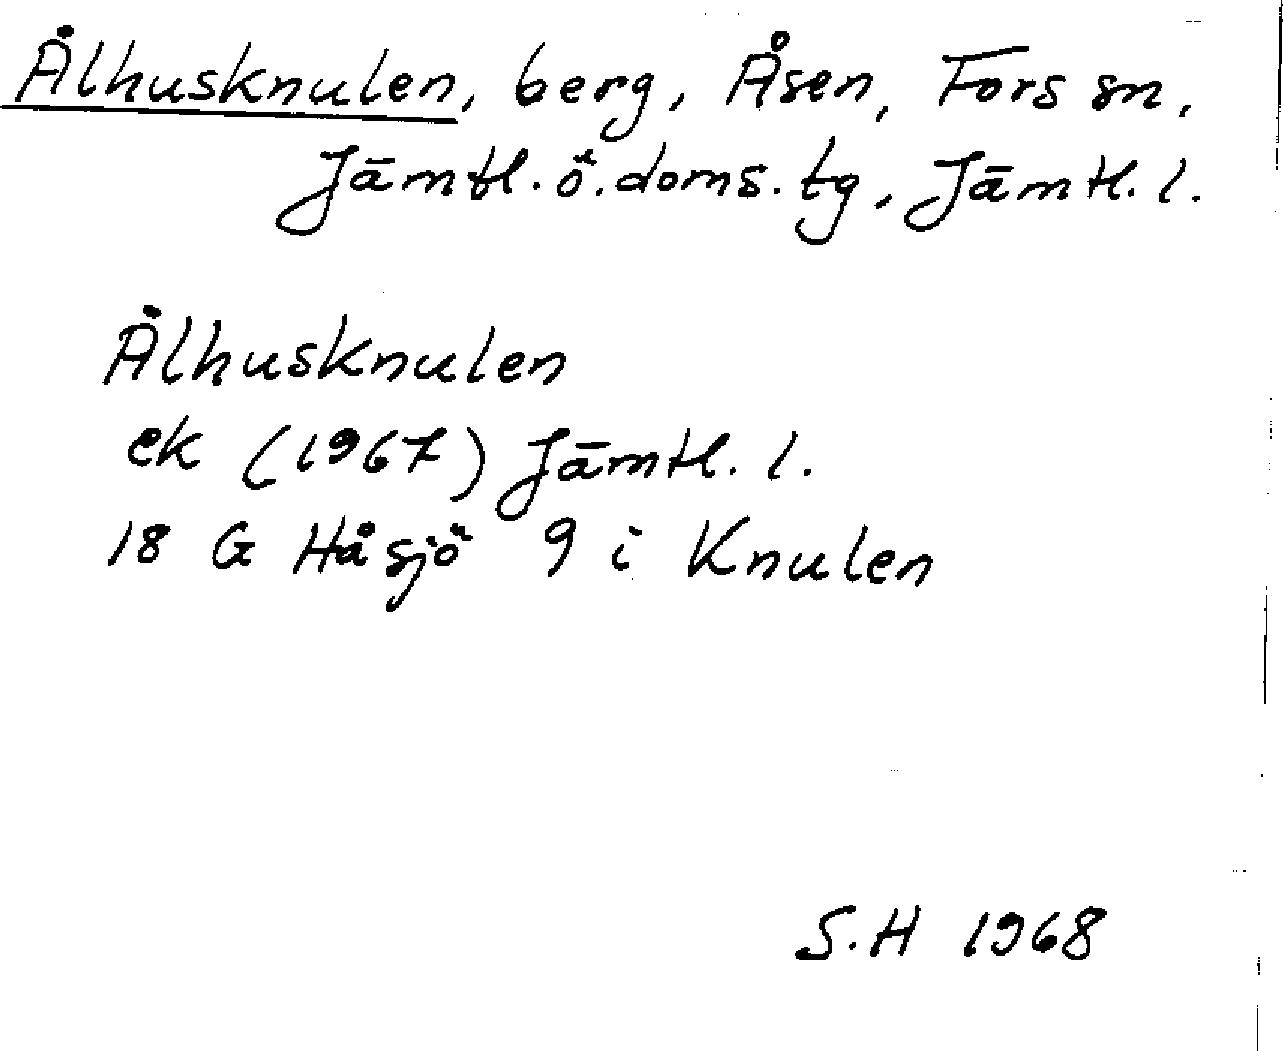 Ålhusknulen, berg, Åsen, Fors sn,
Jämtl. ö. doms. tg, Jämtl. l.
Ålhusknulen
ek (1967) Jämtl. l.
18 G Håsjö 9 i Knulen
S.H 1968